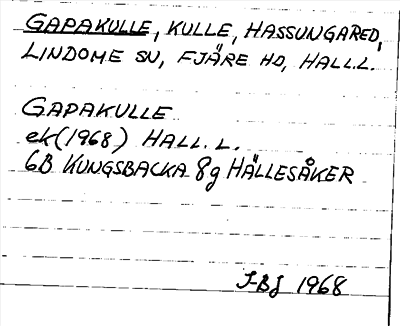 GAPAKULLE, KULLE, HASSUNGARED,
LINDOME SN, FJÄRE HD, HALL.L.
GAPAKULLE
ek(1968) HALL. L.
6B KUNGSBACKA 8g HÄLLESÅKER
J-BJ 1968